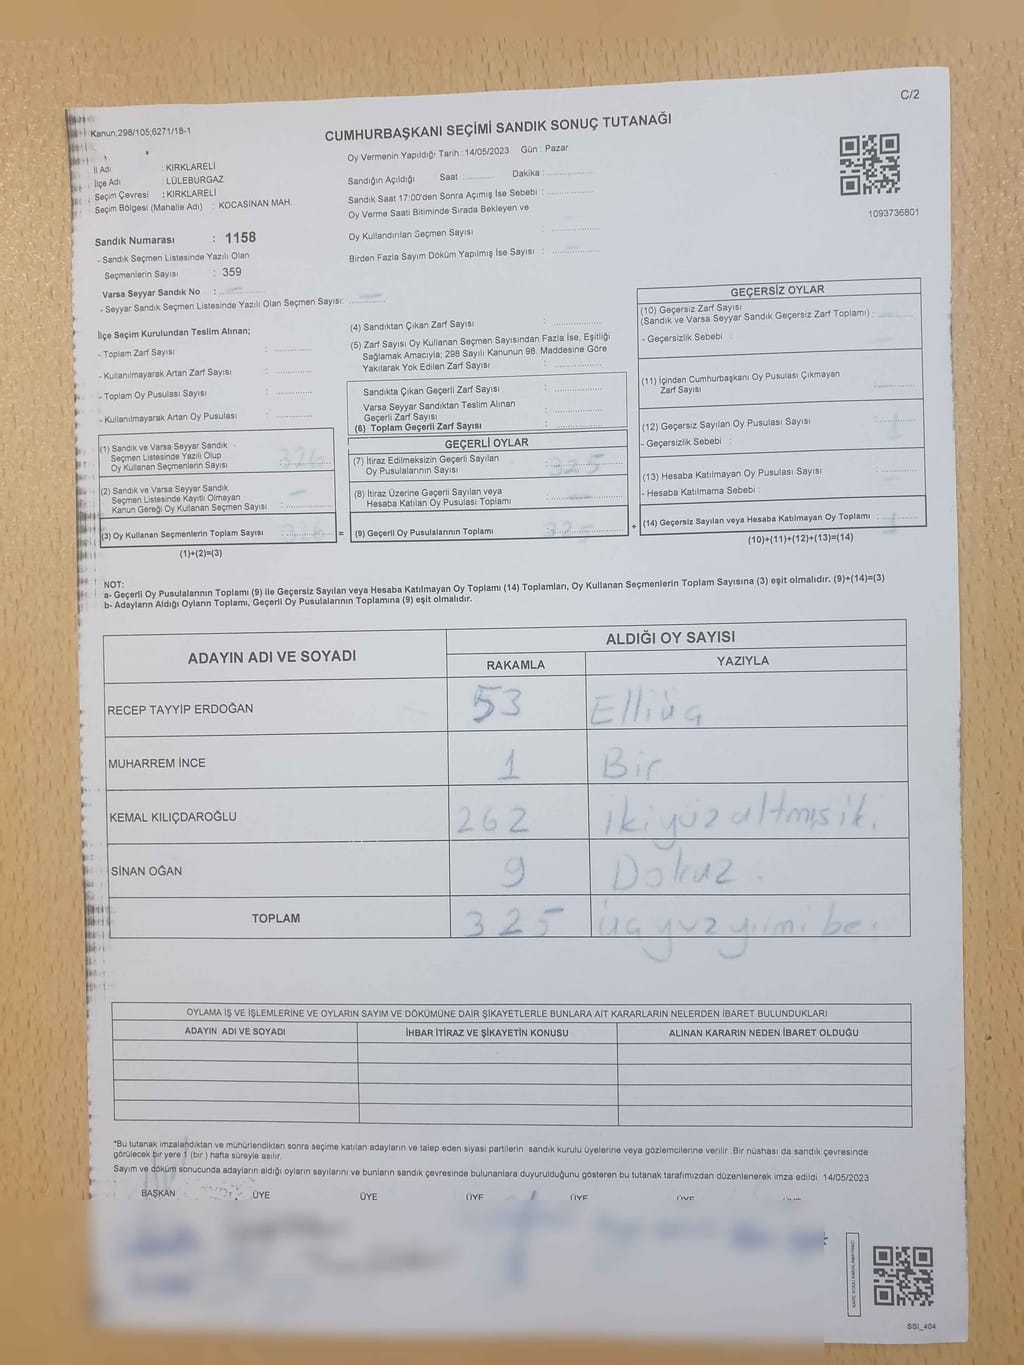 C/2
Kanun;298/105;6271/18-1
CUMHURBAŞKANI SEÇİMİ SANDIK SONUÇ TUTANAĞI
İl Adı : KIRKLARELİ
İlçe Adı : LÜLEBURGAZ
Seçim Çevresi : KIRKLARELİ
Seçim Bölgesi (Mahalle Adı) : KOCASİNAN MAH.
Sandık Numarası : 1158
- Sandık Seçmen Listesinde Yazılı Olan
Seçmenlerin Sayısı : 359
Varsa Seyyar Sandık No :
- Seyyar Sandık Seçmen Listesinde Yazılı Olan Seçmen Sayısı:
Oy Vermenin Yapıldığı Tarih : 14/05/2023 Gün : Pazar
Sandığın Açıldığı Saat : Dakika :
Sandık Saat 17:00'den Sonra Açımış İse Sebebi :
Oy Verme Saati Bitiminde Sırada Bekleyen ve
Oy Kullandırılan Seçmen Sayısı :
Birden Fazla Sayım Döküm Yapılmış İse Sayısı :
1093736801
İlçe Seçim Kurulundan Teslim Alınan;
- Toplam Zarf Sayısı :
- Kullanılmayarak Artan Zarf Sayısı :
- Toplam Oy Pusulası Sayısı :
- Kullanılmayarak Artan Oy Pusulası :
(1) Sandık ve Varsa Seyyar Sandık
Seçmen Listesinde Yazılı Olup
Oy Kullanan Seçmenlerin Sayısı : 326
(2) Sandık ve Varsa Seyyar Sandık
Seçmen Listesinde Kayıtlı Olmayan
Kanun Gereği Oy Kullanan Seçmen Sayısı : –
(3) Oy Kullanan Seçmenlerin Toplam Sayısı : 326
(1)+(2)=(3)
(4) Sandıktan Çıkan Zarf Sayısı :
(5) Zarf Sayısı Oy Kullanan Seçmen Sayısından Fazla İse, Eşitliği
Sağlamak Amacıyla; 298 Sayılı Kanunun 98. Maddesine Göre
Yakılarak Yok Edilen Zarf Sayısı :
Sandıkta Çıkan Geçerli Zarf Sayısı :
Varsa Seyyar Sandıktan Teslim Alınan
Geçerli Zarf Sayısı :
(6) Toplam Geçerli Zarf Sayısı :
GEÇERLİ OYLAR
(7) İtiraz Edilmeksizin Geçerli Sayılan
Oy Pusulalarının Sayısı : 325
(8) İtiraz Üzerine Geçerli Sayılan veya
Hesaba Katılan Oy Pusulası Toplamı : –
= (9) Geçerli Oy Pusulalarının Toplamı : 325
GEÇERSİZ OYLAR
(10) Geçersiz Zarf Sayısı
(Sandık ve Varsa Seyyar Sandık Geçersiz Zarf Toplamı) :
- Geçersizlik Sebebi :
(11) İçinden Cumhurbaşkanı Oy Pusulası Çıkmayan
Zarf Sayısı :
(12) Geçersiz Sayılan Oy Pusulası Sayısı : 1
- Geçersizlik Sebebi :
(13) Hesaba Katılmayan Oy Pusulası Sayısı :
- Hesaba Katılmama Sebebi :
+ (14) Geçersiz Sayılan veya Hesaba Katılmayan Oy Toplamı : 1
(10)+(11)+(12)+(13)=(14)
NOT:
a- Geçerli Oy Pusulalarının Toplamı (9) ile Geçersiz Sayılan veya Hesaba Katılmayan Oy Toplamı (14) Toplamları, Oy Kullanan Seçmenlerin Toplam Sayısına (3) eşit olmalıdır. (9)+(14)=(3)
b- Adayların Aldığı Oyların Toplamı, Geçerli Oy Pusulalarının Toplamına (9) eşit olmalıdır.
ADAYIN ADI VE SOYADI ALDIĞI OY SAYISI
RAKAMLA YAZIYLA
RECEP TAYYİP ERDOĞAN 53 Elliüç
MUHARREM İNCE 1 Bir
KEMAL KILIÇDAROĞLU 262 ikiyüzaltmışik.
SİNAN OĞAN 9 Dokuz.
TOPLAM 325 üçyüzyirmi be
OYLAMA İŞ VE İŞLEMLERİNE VE OYLARIN SAYIM VE DÖKÜMÜNE DAİR ŞİKAYETLERLE BUNLARA AİT KARARLARIN NELERDEN İBARET BULUNDUKLARI
ADAYIN ADI VE SOYADI İHBAR İTİRAZ VE ŞİKAYETİN KONUSU ALINAN KARARIN NEDEN İBARET OLDUĞU
*Bu tutanak imzalandıktan ve mühürlendikten sonra seçime katılan adayların ve talep eden siyasi partilerin sandık kurulu üyelerine veya gözlemcilerine verilir .Bir nüshası da sandık çevresinde
görülecek bir yere 1 (bir ) hafta süreyle asılır.
Sayım ve döküm sonucunda adayların aldığı oyların sayılarını ve bunların sandık çevresinde bulunanlara duyurulduğunu gösteren bu tutanak tarafımızdan düzenlenerek imza edildi. 14/05/2023
BAŞKAN ÜYE ÜYE ÜYE ÜYE ÜYE ÜYE
SSİ_404